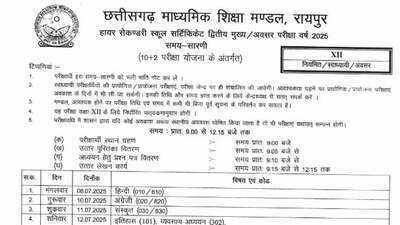 छत्तीसगढ़ माध्यमिक शिक्षा मण्डल, रायपुर
हायर सेकण्डरी स्कूल सर्टिफिकेट द्वितीय मुख्य/अवसर परीक्षा वर्ष 2025
समय-सारणी
(10+2 परीक्षा योजना के अंतर्गत)
XII
नियमित/स्वाध्यायी/अवसर
टिप्पणियां -
1. परीक्षार्थी इस समय-सारणी को भली भांति नोट कर लें।
2. स्वाध्यायी परीक्षार्थियों की प्रायोगिक/प्रोजेक्ट परीक्षाएं, परीक्षा केन्द्र पर ही संचालित की जायेगी।
3. मण्डल, आवश्यक होने पर परीक्षा तिथि एवं समय में कभी भी बिना पूर्व सूचना के परिवर्तन कर सकता है।
4. यह परीक्षा कक्षा XII के लिये निर्धारित पाठ्यक्रमानुसार होगी।
समय : प्रातः 9.00 से 12.15 बजे तक
(क) परीक्षार्थी स्थान ग्रहण - समय प्रातः 9.00 बजे
(ख) उत्तर पुस्तिका वितरण - समय प्रातः 9.05 बजे
(ग) अध्ययन हेतु प्रश्न पत्र वितरण - समय प्रातः 9.10 बजे
(घ) उत्तर लेखन कार्य - समय प्रातः 9.15 बजे से 12:15 तक
स.क्र. दिन दिनांक विषय एवं कोड
1 मंगलवार 08.07.2025 हिन्दी (010/810)
2 गुरूवार 10.07.2025 अंग्रेजी (020/820)
3 शुक्रवार 11.07.2025 संस्कृत (030/830)
4 शनिवार 12.07.2025 इतिहास (101), व्यवसाय अध्ययन (302),